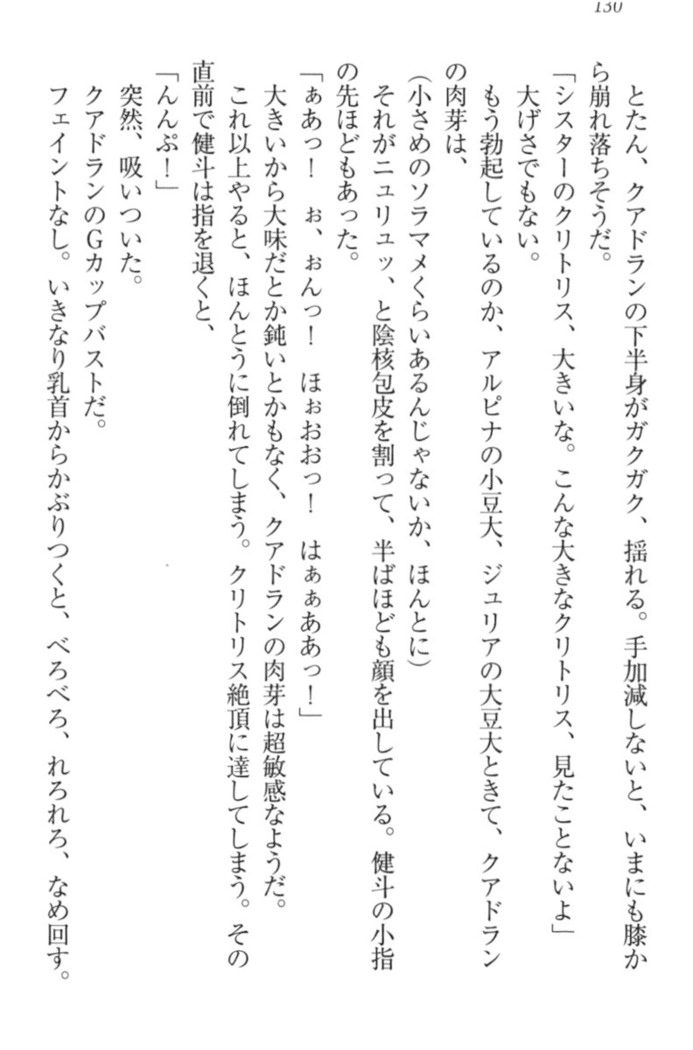 130
とたん、クアドランの下半身がガクガク、揺れる。手加減しないと、いまにも膝か
ら崩れ落ちそうだ。
「シスターのクリトリス、大きいな。こんな大きなクリトリス、見たことないよ」
大げさでもない。
もう勃起しているのか、アルピナの小豆大、ジュリアの大豆大ときて、クアドラン
の肉芽は、
(小さめのソラマメくらいあるんじゃないか、ほんとに)
それがニュリュッ、と陰核包皮を割って、半ばほども顔を出している。健斗の小指
の先ほどもあった。
「ぁあっ！　ぉ、ぉんっ！　ほぉおおっ！　はぁぁああっ！」
大きいから大味だとか鈍いとかもなく、クアドランの肉芽は超敏感なようだ。
これ以上やると、ほんとうに倒れてしまう。クリトリス絶頂に達してしまう。その
直前で健斗は指を退くと、
「んんぷ！」
突然、吸いついた。
クアドランのGカップバストだ。
フェイントなし。いきなり乳首からかぶりつくと、べろべろ、れろれろ、なめ回す。